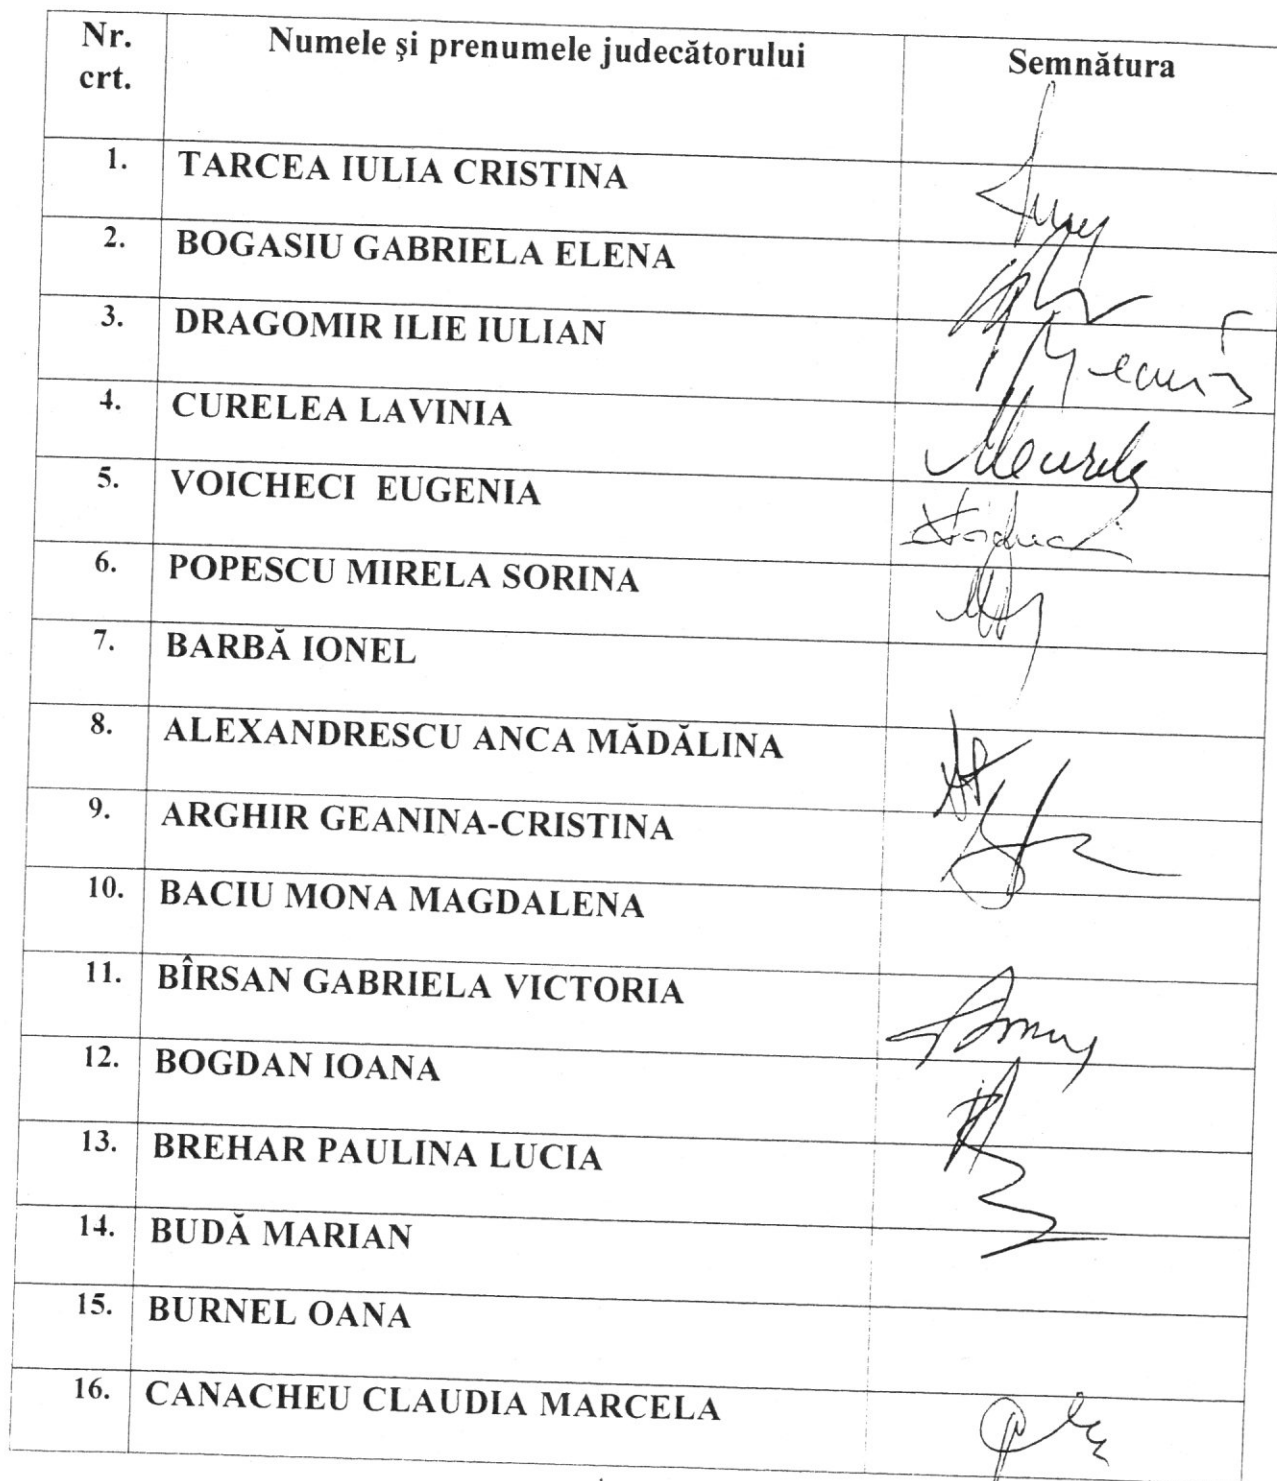 Nr. crt. Numele şi prenumele judecătorului Semnătura
1. TARCEA IULIA CRISTINA
2. BOGASIU GABRIELA ELENA
3. DRAGOMIR ILIE IULIAN
4. CURELEA LAVINIA
5. VOICHECI  EUGENIA
6. POPESCU MIRELA SORINA
7. BARBĂ IONEL
8. ALEXANDRESCU ANCA MĂDĂLINA
9. ARGHIR GEANINA-CRISTINA
10. BACIU MONA MAGDALENA
11. BÎRSAN GABRIELA VICTORIA
12. BOGDAN IOANA
13. BREHAR PAULINA LUCIA
14. BUDĂ MARIAN
15. BURNEL OANA
16. CANACHEU CLAUDIA MARCELA